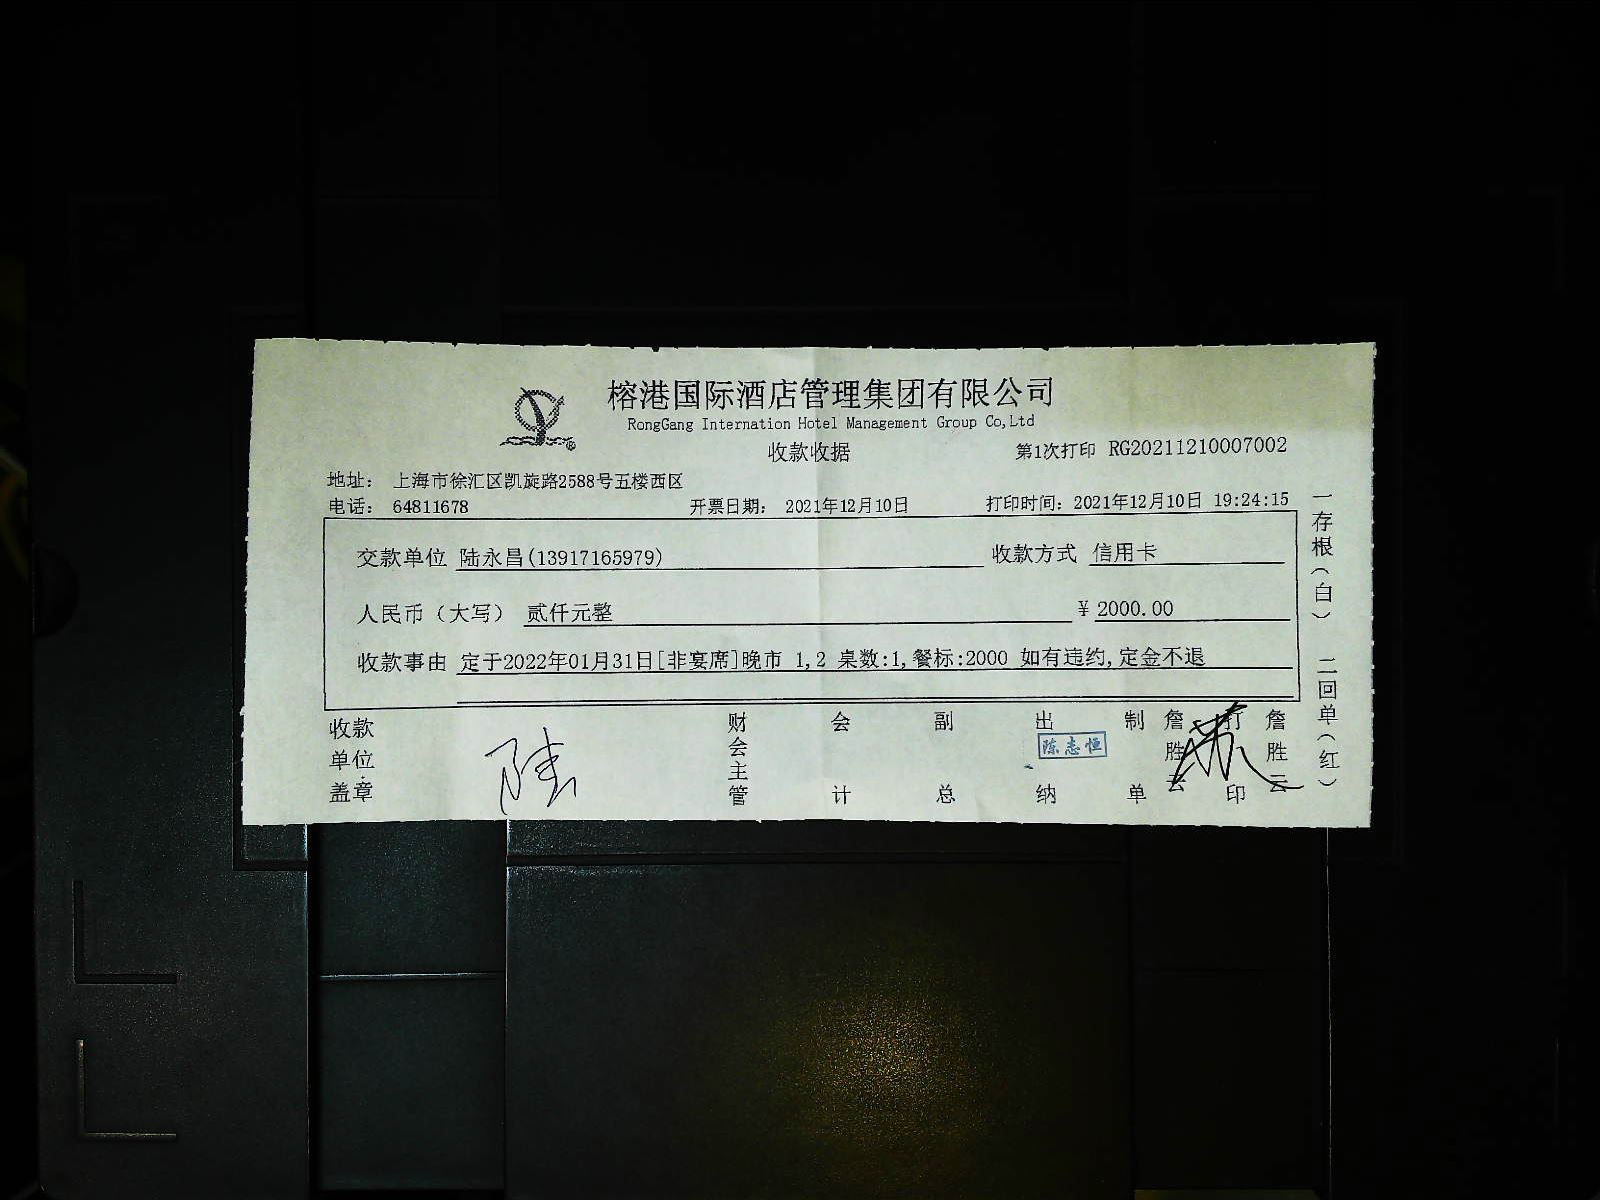 榕港国际酒店管理集团有限公司
RongGang Internation Hotel Management Group Co,Ltd
收款收据
第1次打印 RG20211210007002
地址： 上海市徐汇区凯旋路2588号五楼西区
电话： 64811678 开票日期： 2021年12月10日 打印时间: 2021年12月10日 19:24:15
交款单位 陆永昌(13917165979) 收款方式 信用卡
人民币（大写） 贰仟元整 ¥ 2000.00
收款事由 定于2022年01月31日[非宴席]晚市 1,2 桌数:1,餐标:2000 如有违约,定金不退
收款单位盖章
陆
财会主管
会计
副总
出纳
陈志恒
制单
詹胜云
打印
詹胜云
一存根（白） 二回单（红）